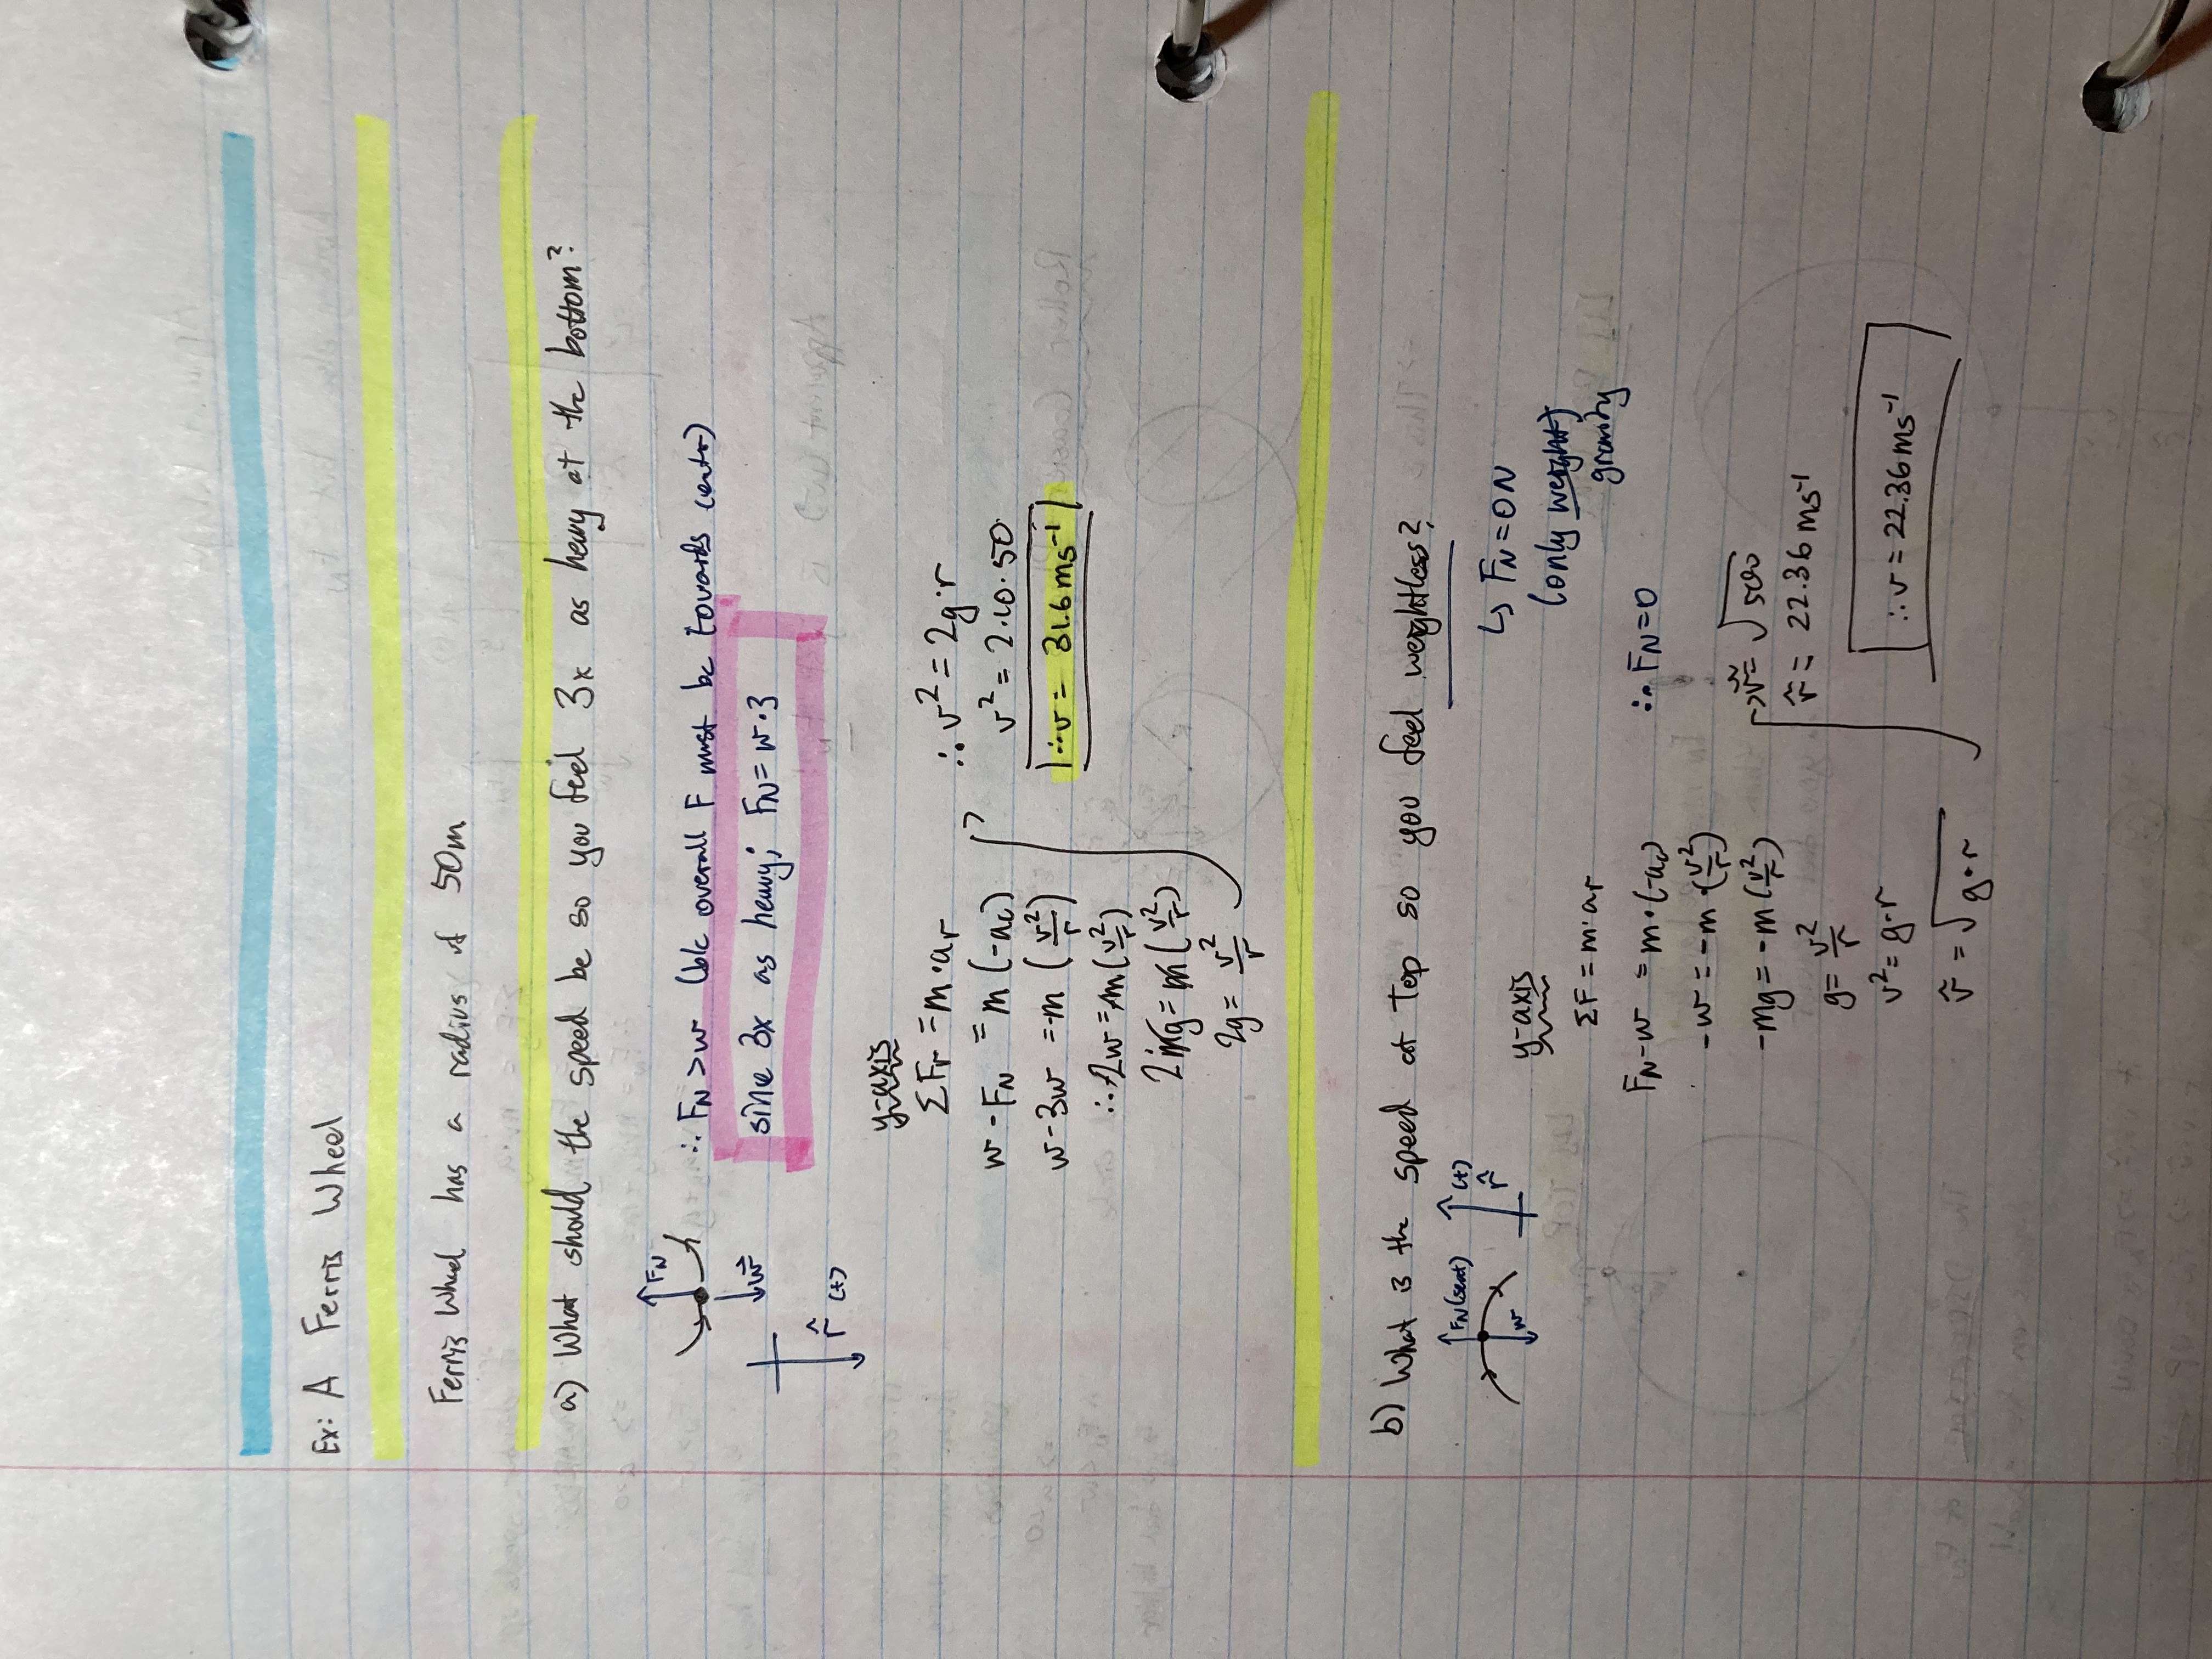 Ex: A Ferris Wheel
Ferris Wheel has a radius of 50m
a) What should the speed be so you feel 3x as heavy at the bottom?
FN
w⃗
r̂ (+)
∴ FN > w (b/c overall F must be towards center)
since 3x as heavy; FN = w·3
y-axis
ΣFr = m·ar
w - FN = m(-ac)
w - 3w = -m (v²/r)
∴ -2w = -m(v²/r)
2mg = m(v²/r)
2g = v²/r
∴ v² = 2g·r
v² = 2·10·50
∴ v = 31.6 ms⁻¹
b) What is the speed at Top so you feel weightless?
FN (seat)
w
(+)
r̂
↳ FN = 0N
(only weight)
gravity
y-axis
ΣF = m·ar
FN - w = m·(-ac)
∴ FN = 0
-w = -m·(v²/r)
-mg = -m(v²/r)
g = v²/r
v² = g·r
ṽ = √g·r
ṽ = √500
ṽ = 22.36 ms⁻¹
∴ v = 22.36 ms⁻¹